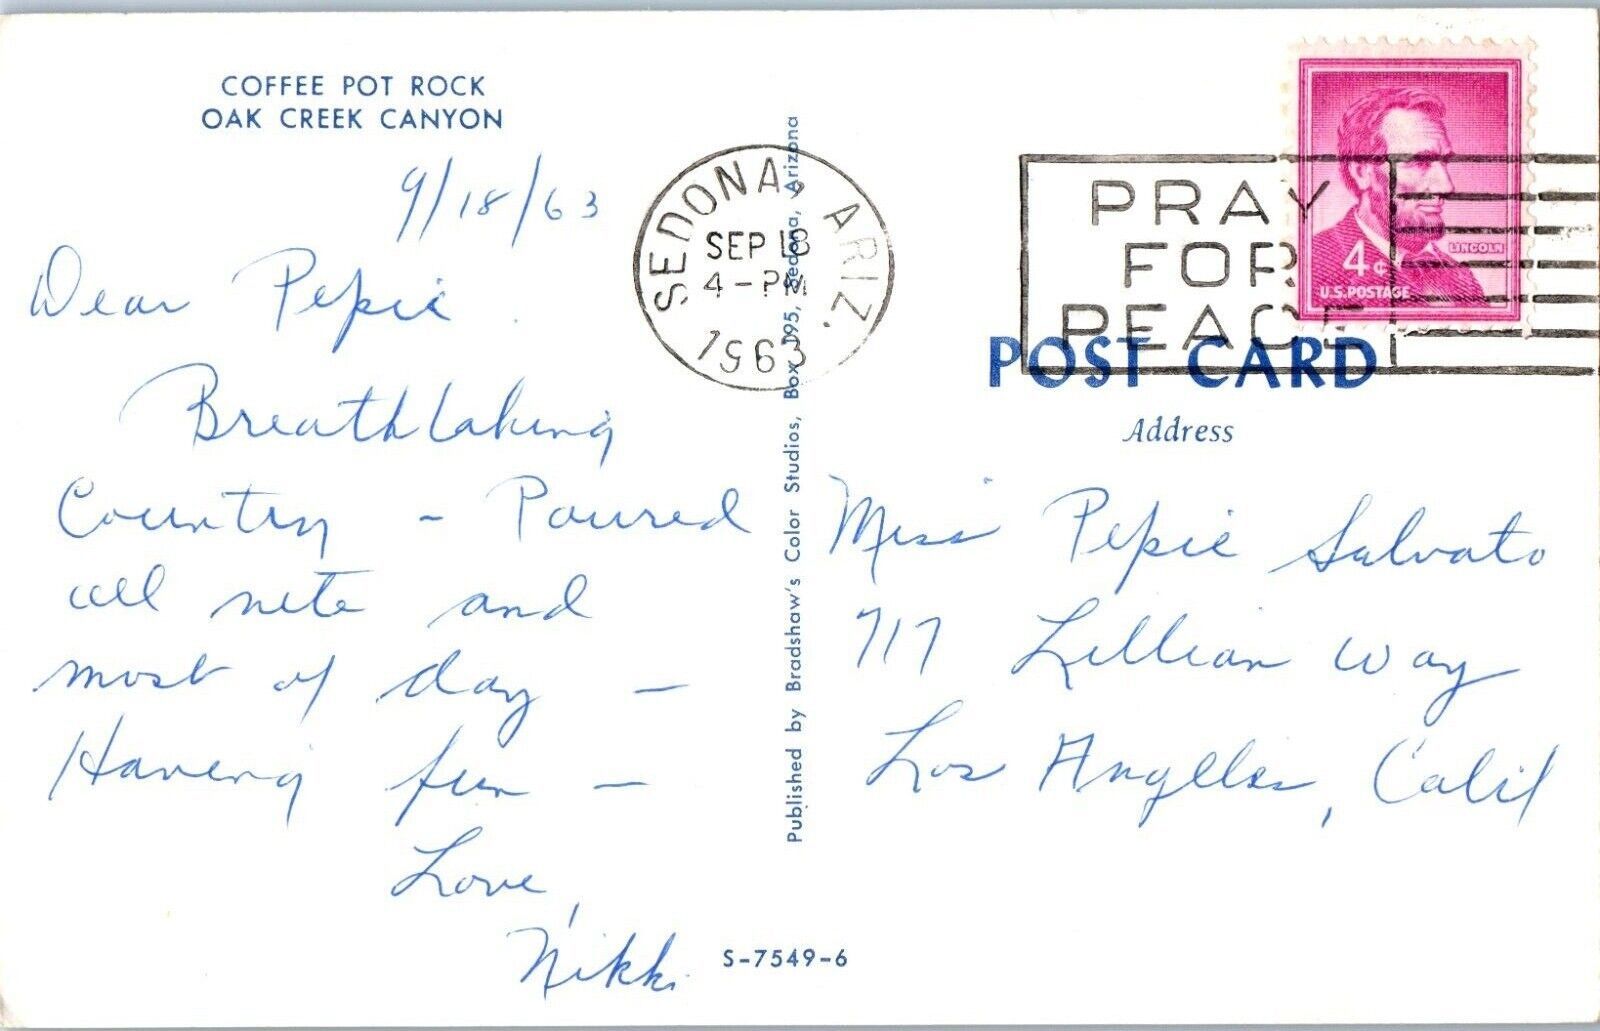 COFFEE POT ROCK
OAK CREEK CANYON
9/18/63
Dear Pepie
Breathtaking
Country - Poured
all nite and
most of day -
Having fun -
Love,
Nikki
S-7549-6
Published by Bradshaw's Color Studios, Box 195, Sedona, Arizona
SEDONA, ARIZ.
SEP 18
4-PM
1963
PRAY
FOR
PEACE
4¢
LINCOLN
U.S. POSTAGE
POST CARD
Address
Miss Pepie Salvato
717 Lillian Way
Los Angeles, Calif